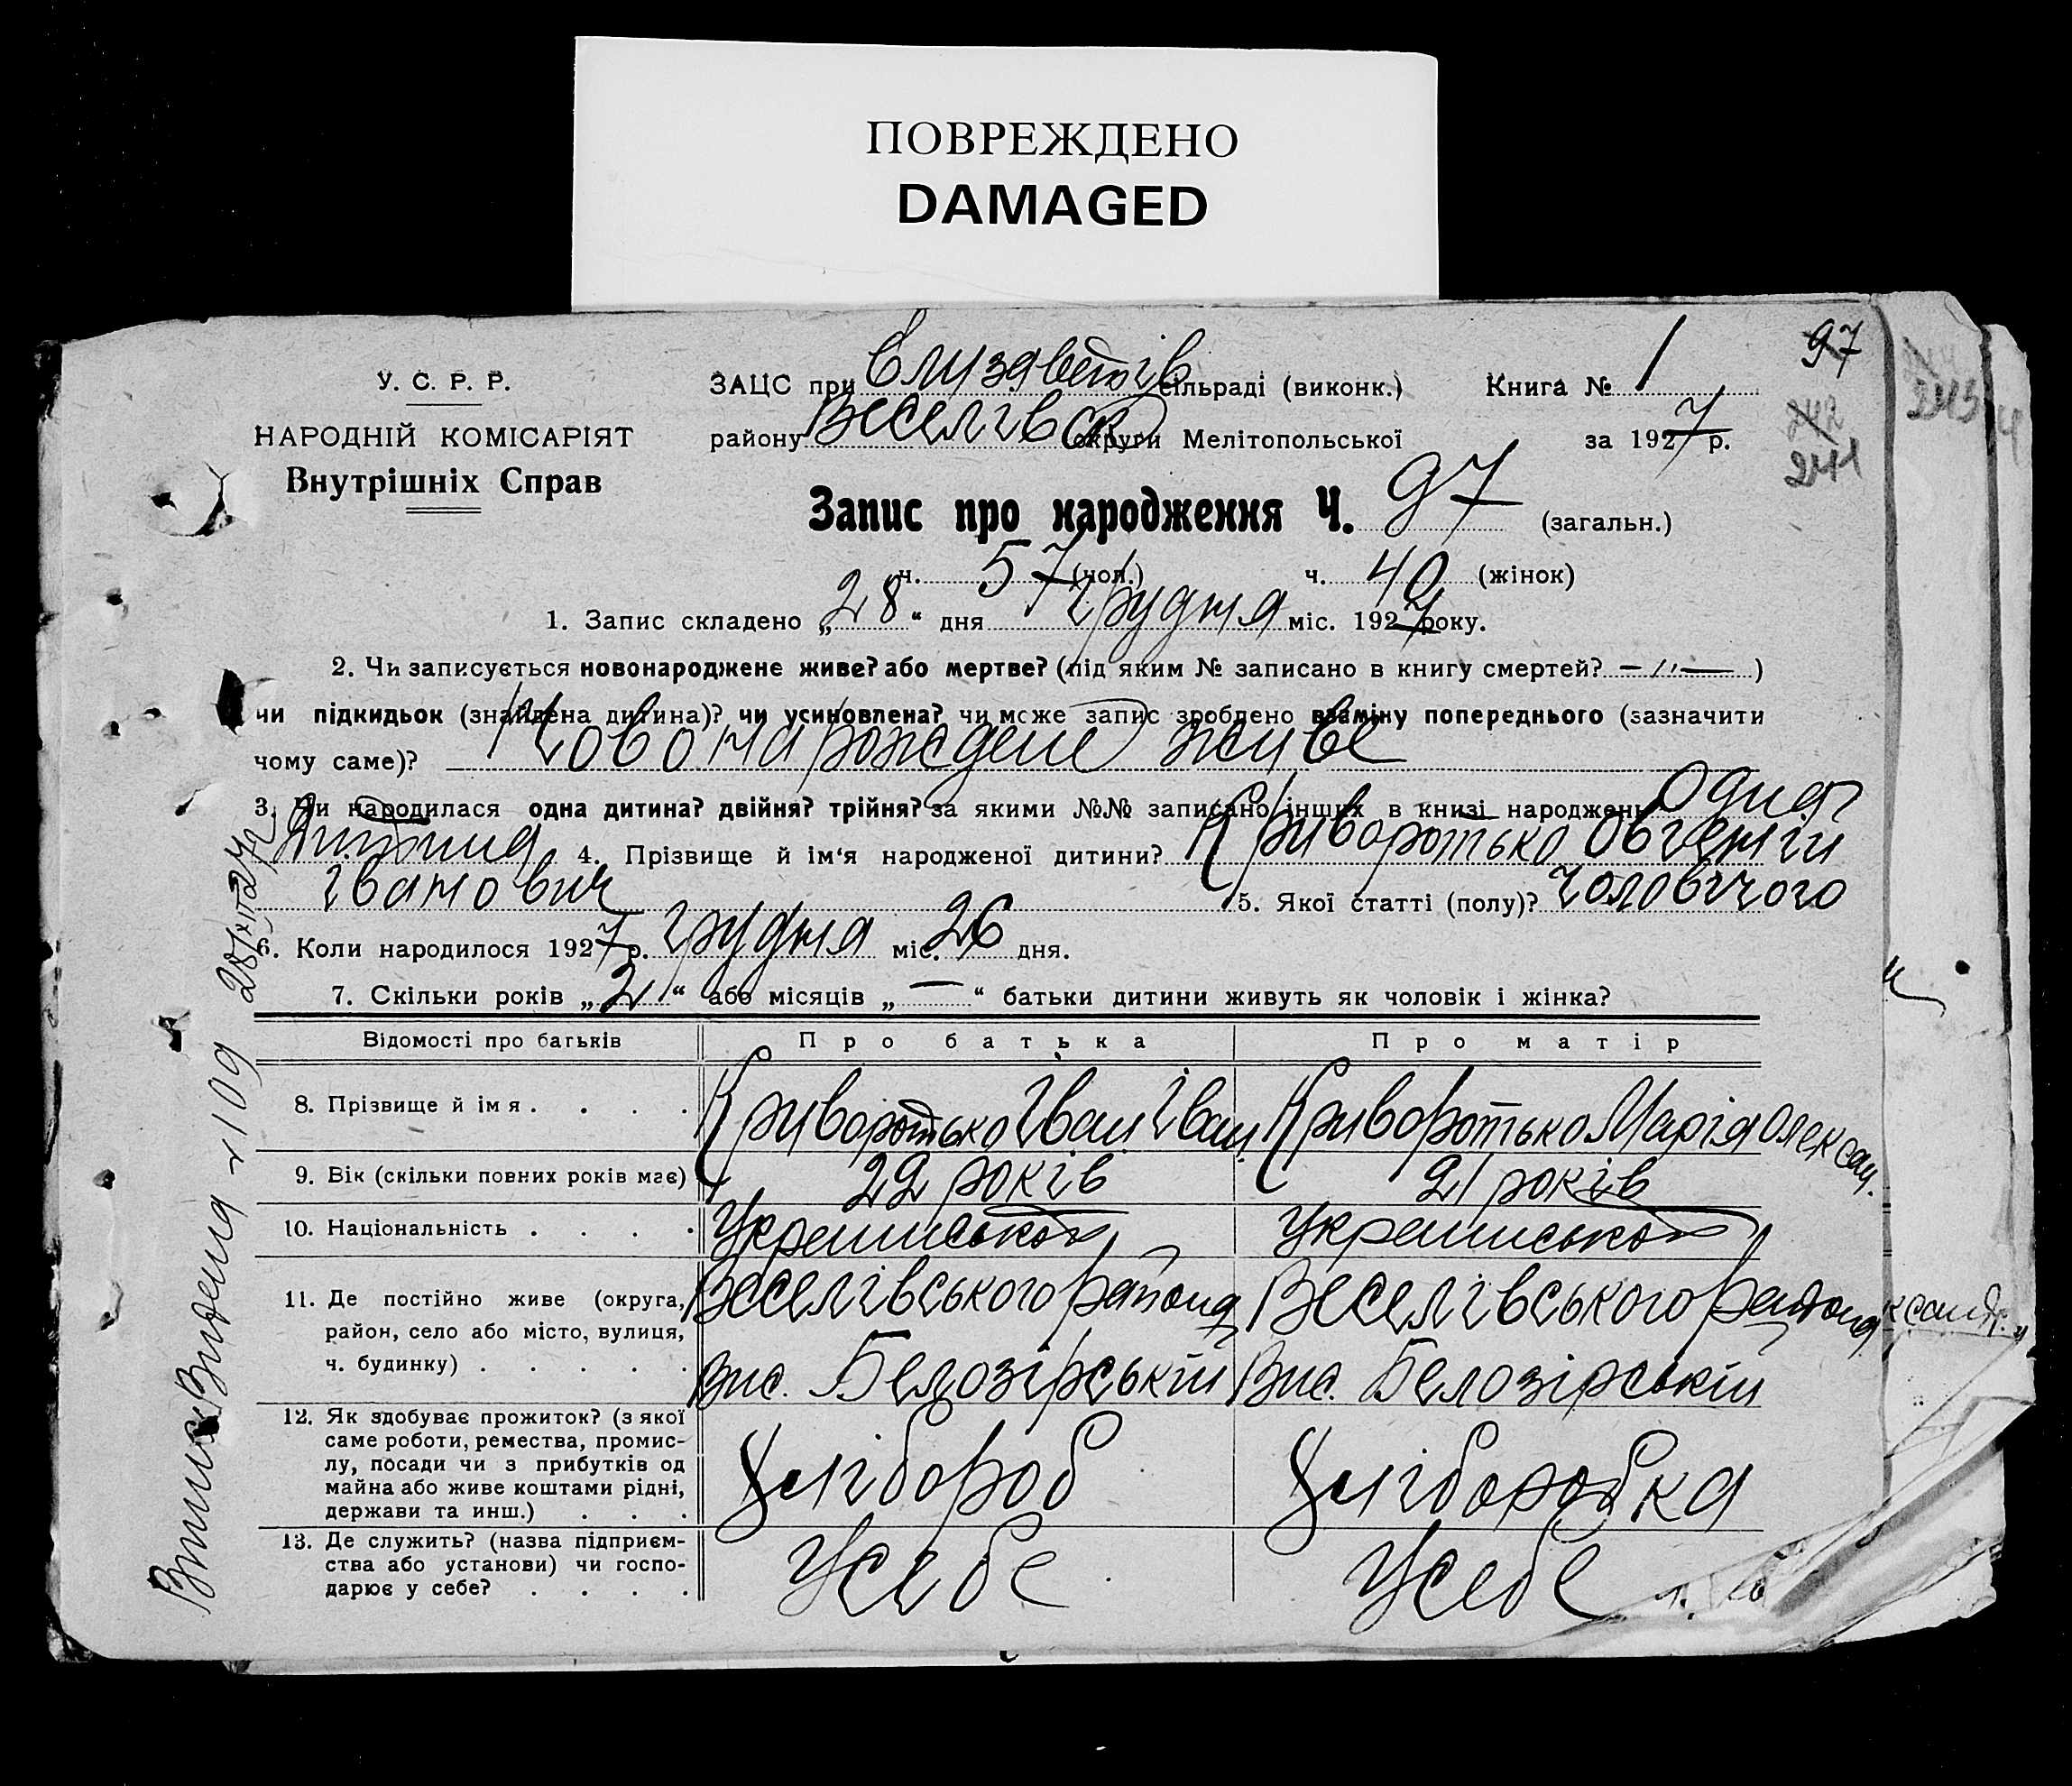 ПОВРЕЖДЕНО
DAMAGED
97
У. С. Р. Р.
НАРОДНІЙ КОМІСАРІЯТ
Внутрішніх Справ
ЗАЦС при Єлизаветів сільраді (виконк.) Книга № 1
району Веселівсь округи Мелітопольської за 1927 р.
242
241
243
Запис про народження Ч. 97 (загальн.)
ч. 57 (чол.) ч. 40 (жінок)
1. Запис складено „28“ дня грудня міс. 1927 року.
2. Чи записується новонароджене живе? або мертве? (під яким № записано в книгу смертей? —〃— )
чи підкидьок (знайдена дитина)? чи усиновлена? чи може запис зроблено взаміну попереднього (зазначити
чому саме)? Новонарождене живе
3. Чи народилася одна дитина? двійня? трійня? за якими №№ записано інших в книзі народжень? Одна
дитина 4. Прізвище й ім‘я народженої дитини? Криворотько Овгеній
Іванович 5. Якої статті (полу)? чоловічого
6. Коли народилося 1927 р. грудня міс. 26 дня.
7. Скільки років „2“ або місяців „—“ батьки дитини живуть як чоловік і жінка?
Відомості про батьків Про батька Про матір
8. Прізвище й імя . . . . Криворотько Іван Іван. Криворотько Марія Олексан.
9. Вік (скільки повних років має) 22 років 21 років
10. Національність . . . . Украинськой Украинськой
11. Де постійно живе (округа, Веселівського району Веселівського району
район, село або місто, вулиця,
ч. будинку) . . . . . Вис. Белозірській Вис. Белозірській
12. Як здобуває прожиток? (з якої
саме роботи, ремества, промис-
лу, посади чи з прибутків од Хлібороб Хліборобка
майна або живе коштами рідні,
держави та инш.) . . .
13. Де служить? (назва підприєм-
ства або установи) чи госпо- Усебе Усебе
дарює у себе? . . . .
Випис Видена 109
ксандр.